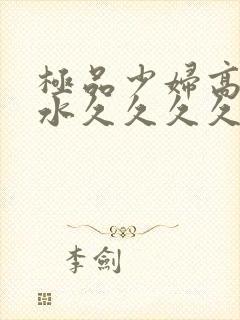 極品少婦高
水久久久久
李劍